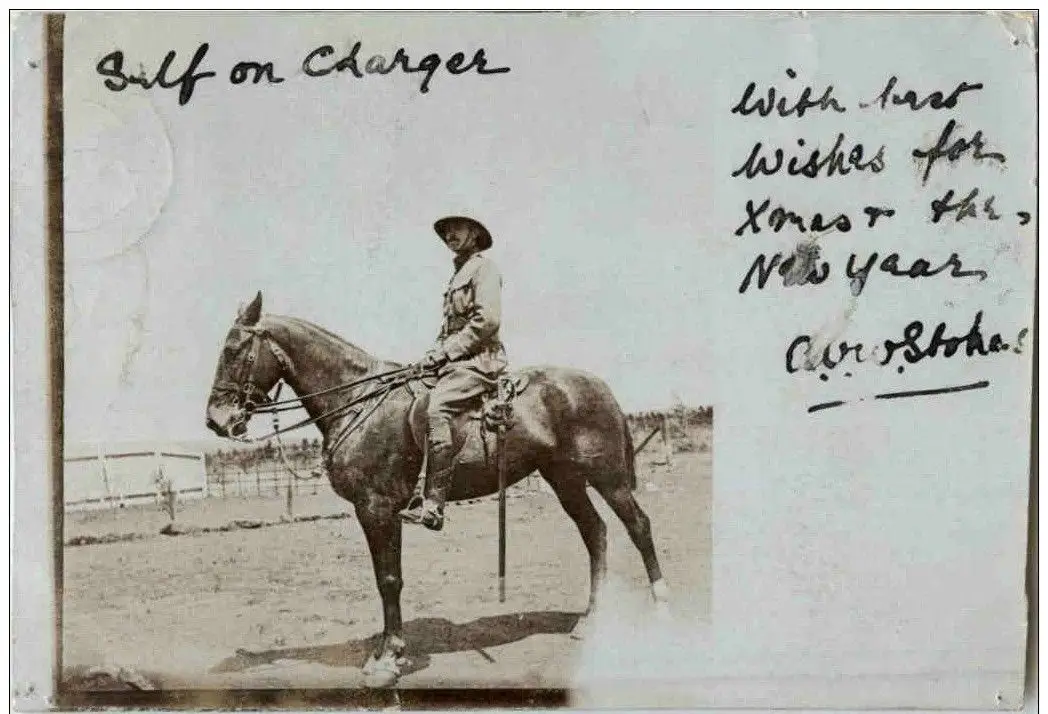 Self on Charger
With best
Wishes for
Xmas & the
New Year
Stokes